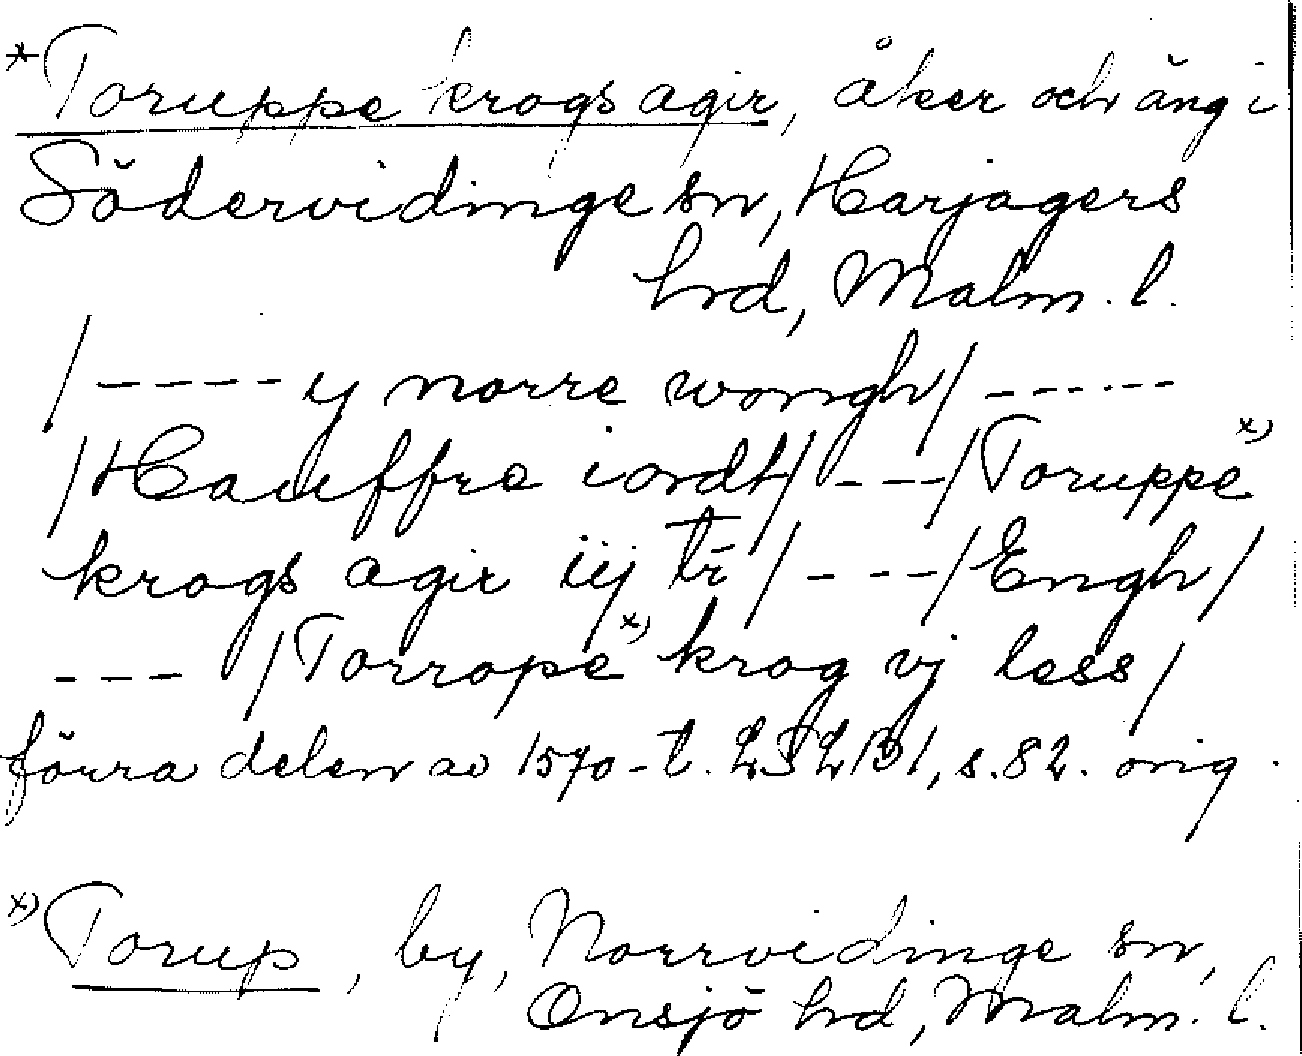 *Toruppe krogs agir, åker och äng i
Södervidinge sn, Harjagers
hrd, Malm. l.
/----y norre wongh/------
/Hauffre iordt/---/Toruppe x)
krogs agir iij tr̄/----/Engh/
---/Torrope x) krog vj less/
förra delen av 1570-t. LSLB1, s.82. orig.
x) Torup, by, Norrvidinge sn,
Onsjö hrd, Malm. l.